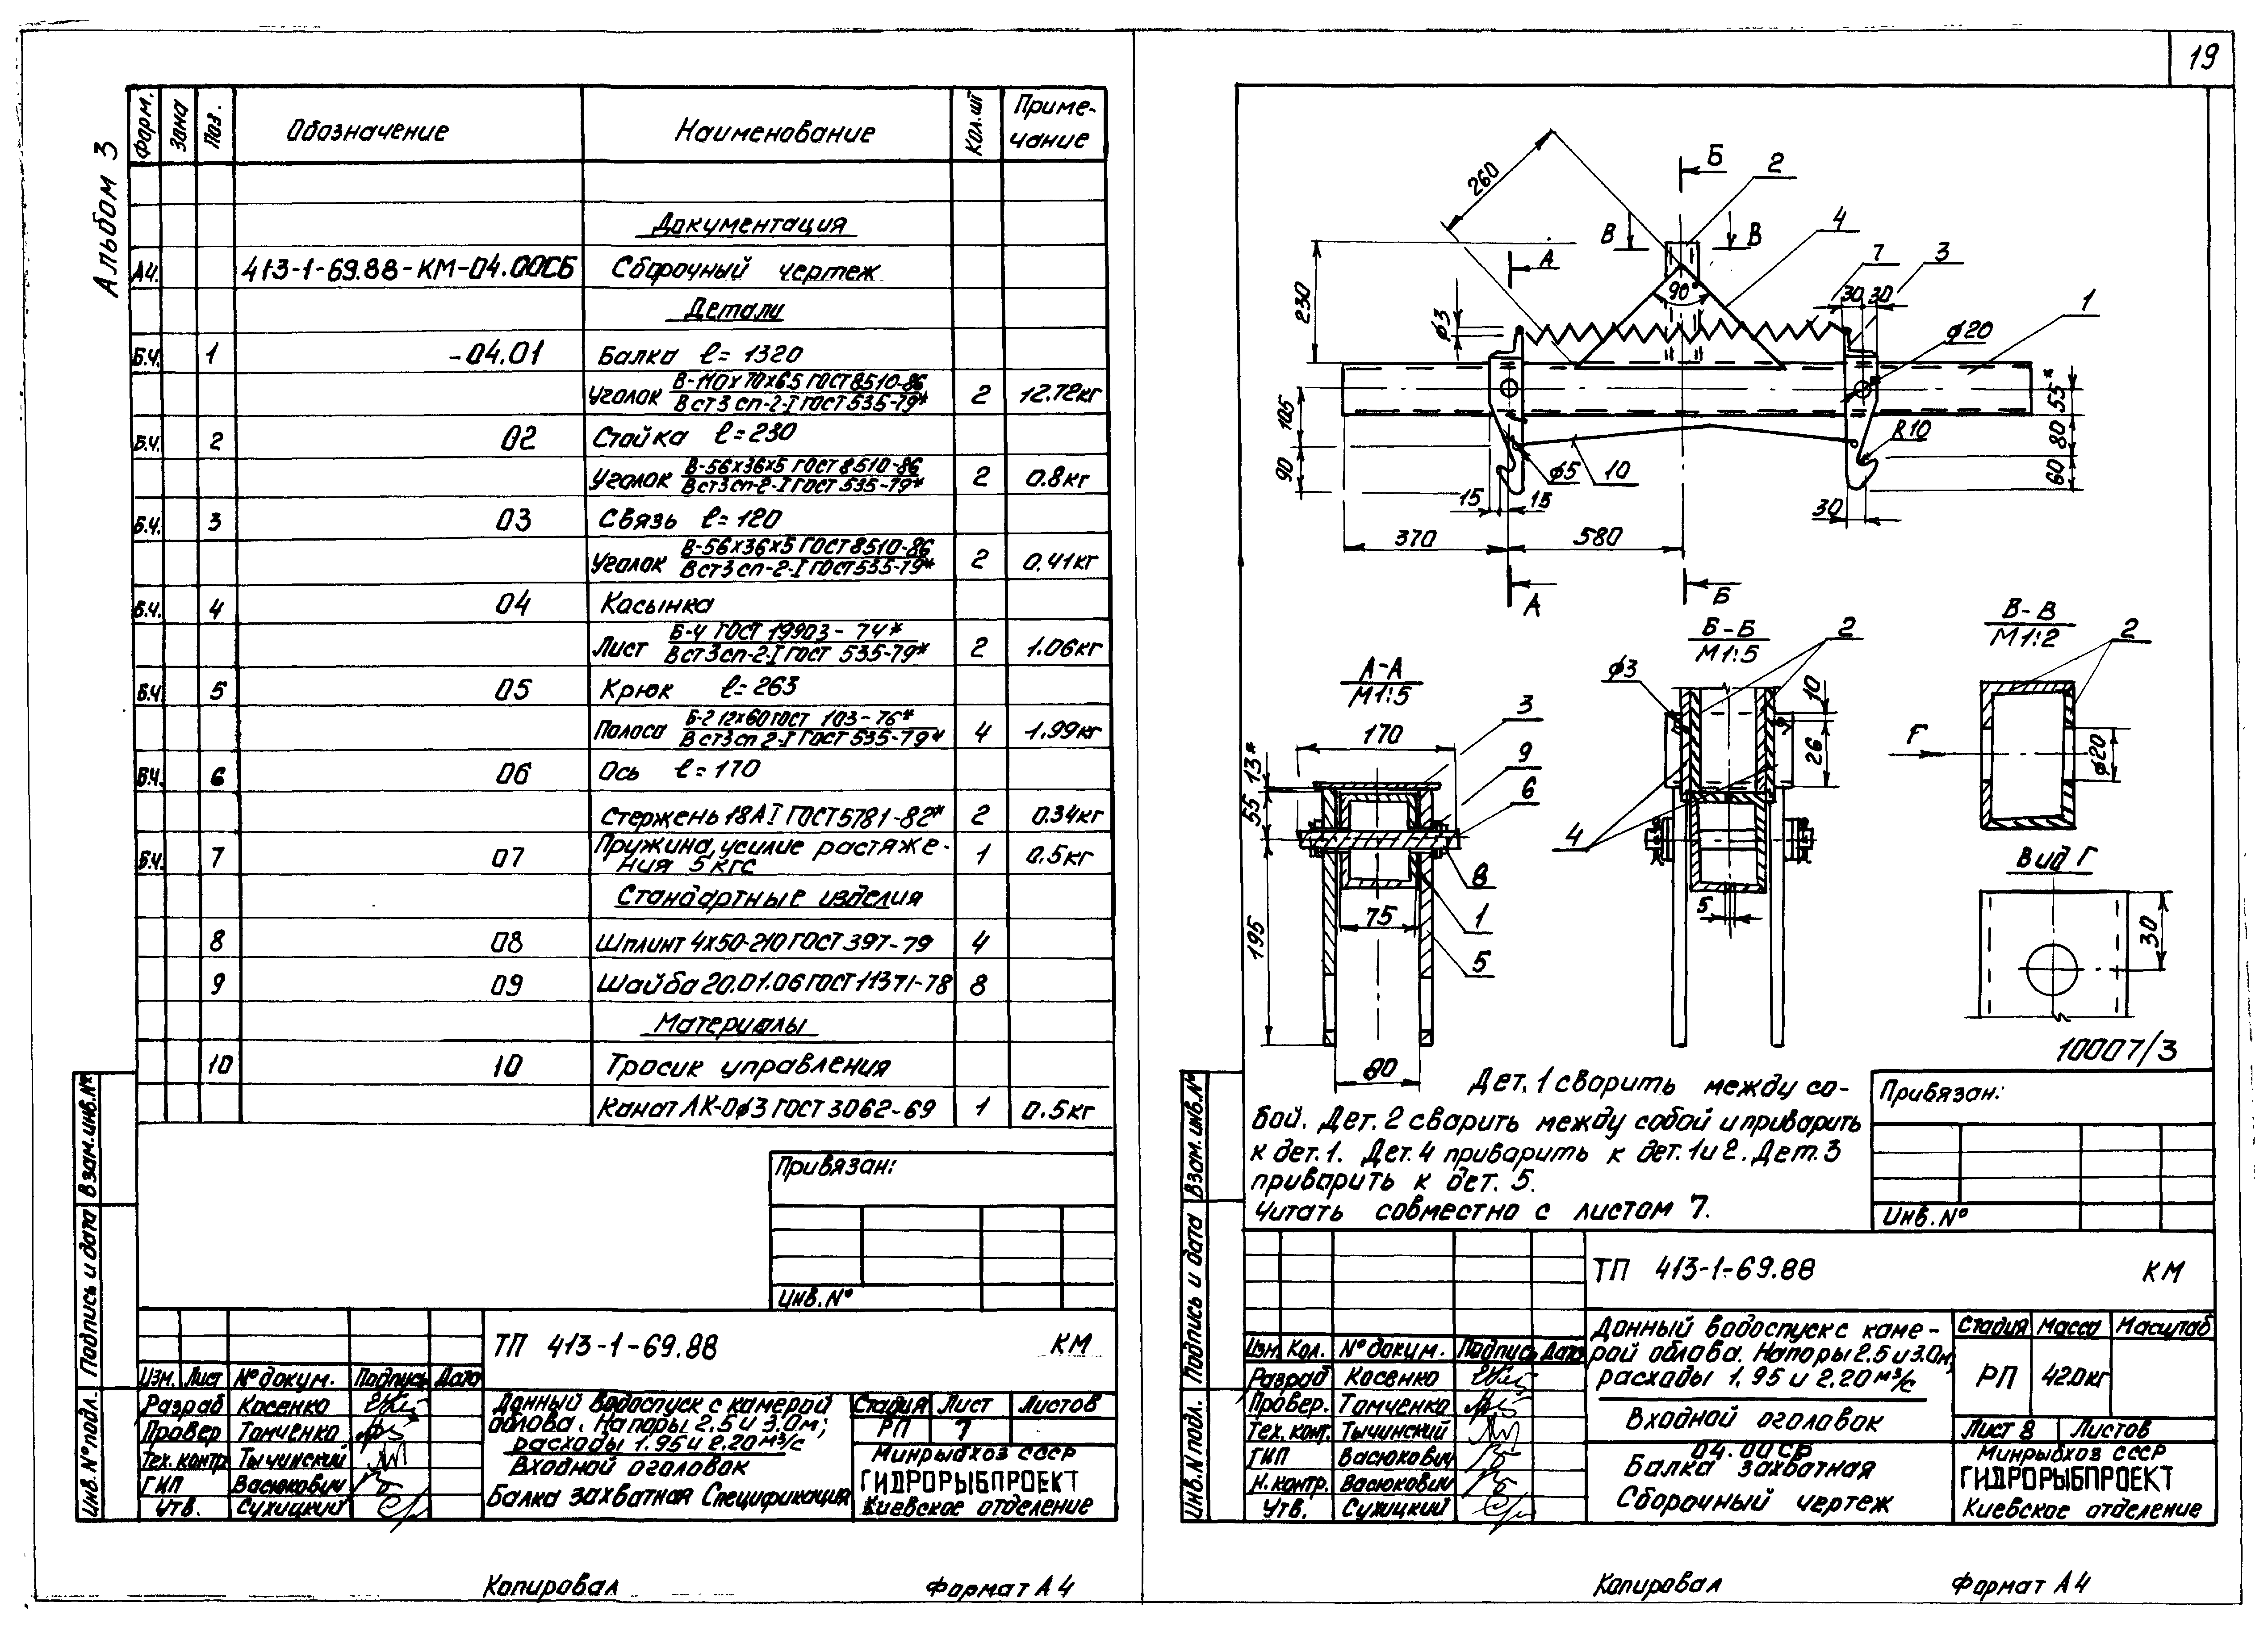 19
Альбом 3
Форм.
Зона
Поз.
Обозначение
Наименование
Кол. шт
Приме-
чание
Документация
А4. 413-1-69.88-КМ-04.00СБ Сборочный чертеж
Детали
Б.Ч. 1 -04.01 Балка ℓ=1320
Уголок В-110х70х6.5 ГОСТ 8510-86 2 12.72кг
Вст3сп-2-I ГОСТ 535-79*
Б.Ч. 2 02 Стойка ℓ=230
Уголок В-56х36х5 ГОСТ 8510-86 2 0.8кг
Вст3сп-2-I ГОСТ 535-79*
Б.Ч. 3 03 Связь ℓ=120
Уголок В-56х36х5 ГОСТ 8510-86 2 0.41кг
Вст3сп-2-I ГОСТ 535-79*
Б.Ч. 4 04 Косынка
Лист Б-4 ГОСТ 19903-74* 2 1.06кг
Вст3сп-2-I ГОСТ 535-79*
Б.Ч. 5 05 Крюк ℓ=263
Полоса Б-2 12х60 ГОСТ 103-76* 4 1.99кг
Вст3сп 2-I ГОСТ 535-79*
Б.Ч. 6 06 Ось ℓ=170
Стержень 18АI ГОСТ 5781-82* 2 0.34кг
Б.Ч. 7 07 Пружина, усилие растяже- 1 0.5кг
ния 5кгс
Стандартные изделия
8 08 Шплинт 4х50-210 ГОСТ 397-79 4
9 09 Шайба 20.01.06 ГОСТ 11371-78 8
Материалы
10 10 Тросик управления
Канат ЛК-Оф3 ГОСТ 3062-69 1 0.5кг
Привязан:
Инв.№
Взам.инв.№
Подпись и дата
Инв.№ подл.
ТП 413-1-69.88 КМ
Изм. Лист № докум. Подпись Дата
Разраб Косенко
Провер Томченко
Тех.контр Тычинский
ГИП Васюкович
Утв. Сухицкий
Донный водоспуск с камерой
облова. Напоры 2.5 и 3.0м;
расходы 1.95 и 2.20 м³/с
Входной оголовок
Балка захватная Спецификация
Стадия Лист Листов
РП 7
Минрыбхоз СССР
ГИДРОРЫБПРОЕКТ
Киевское отделение
Копировал
Формат А4
260
Б
2
В
В
4
А
7
3
230
ф3
90°
30
30
1
ф20
55*
105
90
R10
80
60
ф5
10
15
15
30
370
580
А
Б
А-А
М1:5
170
3
9
6
13*
55
8
75
1
195
5
80
Б-Б
М1:5
2
ф3
10
26
4
5
В-В
М1:2
2
ф20
Вид Г
30
10007/3
Дет. 1 сварить между со-
бой. Дет. 2 сварить между собой и приварить
к дет. 1. Дет. 4 приварить к дет. 1 и 2. Дет. 3
приварить к дет. 5.
Читать совместно с листом 7.
Привязан:
Инв.№
Взам.инв.№
Подпись и дата
Инв.№ подл.
ТП 413-1-69.88 КМ
Изм. Кол. № докум. Подпись Дата
Разраб Косенко
Провер. Томченко
Тех.конт. Тычинский
ГИП Васюкович
Н.контр. Васюкович
Утв. Сухицкий
Донный водоспуск с каме-
рой облова. Напоры 2.5 и 3.0м,
расходы 1,95 и 2.20 м³/с
Входной оголовок
04.00СБ
Балка захватная
Сборочный чертеж
Стадия Масса Масштаб
РП 42.0кг
Лист 8 Листов
Минрыбхоз СССР
ГИДРОРЫБПРОЕКТ
Киевское отделение
Копировал
Формат А4